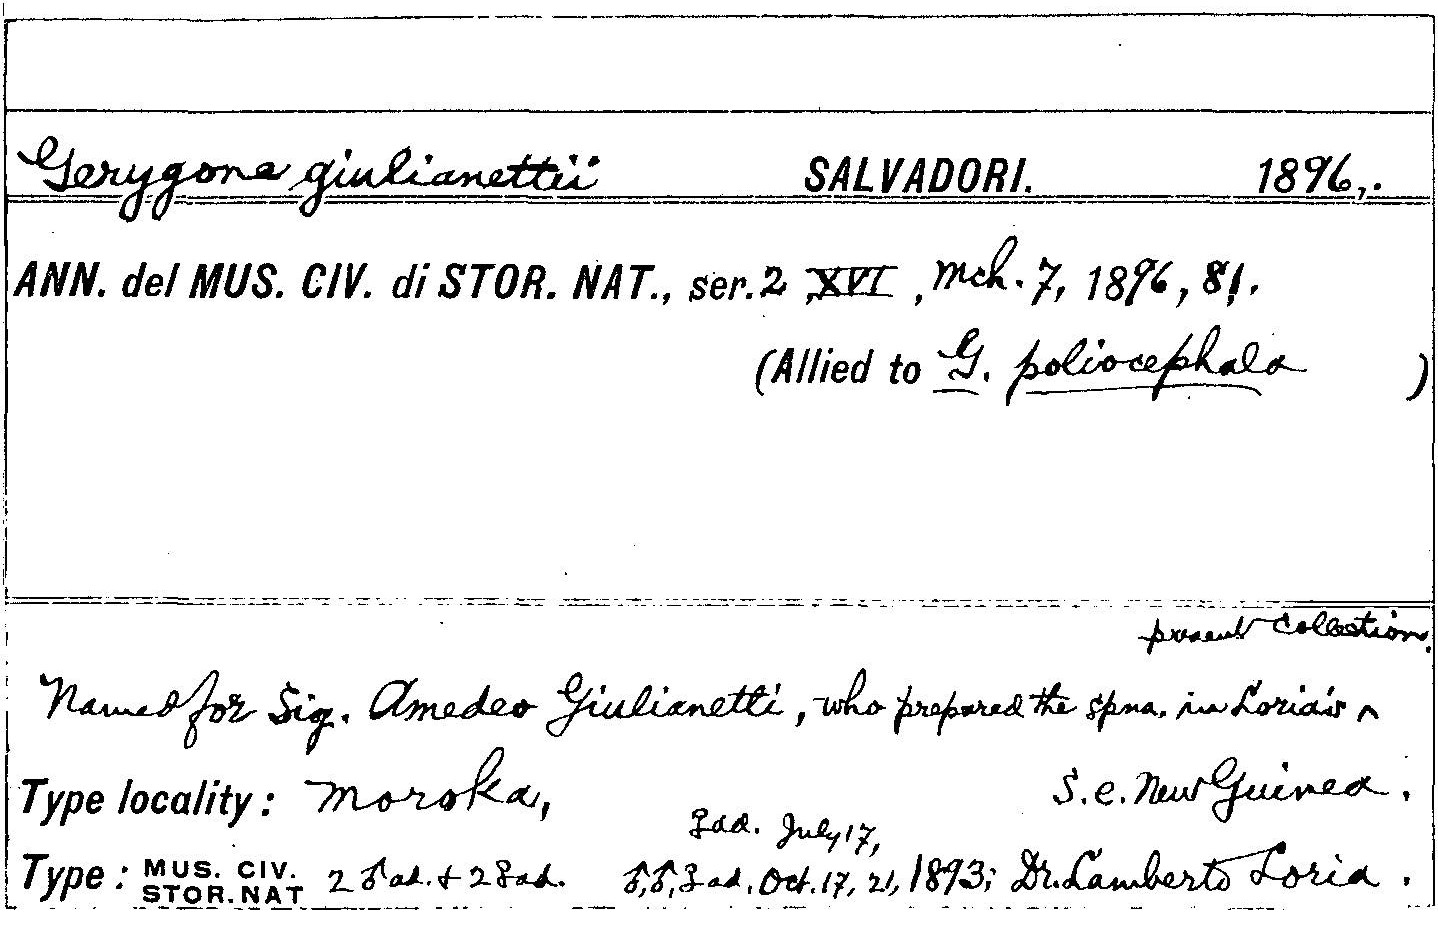 Gerygone giulianettii SALVADORI. 1896,.
ANN. del MUS. CIV. di STOR. NAT., ser. 2 XVI, Mch. 7, 1896, 81.
(Allied to G. poliocephala )
present collection.
Named for Sig. Amedeo Giulianetti, who prepared the spns. in Loria's ^
Type locality: Moroka, S.e. New Guinea.
♀ ad. July 17,
Type: MUS. CIV. STOR. NAT 2 ♂ ad. + 2 ♀ ad. ♂, ♂, ♀ ad. Oct. 17, 21, 1893; Dr. Lamberto Loria.